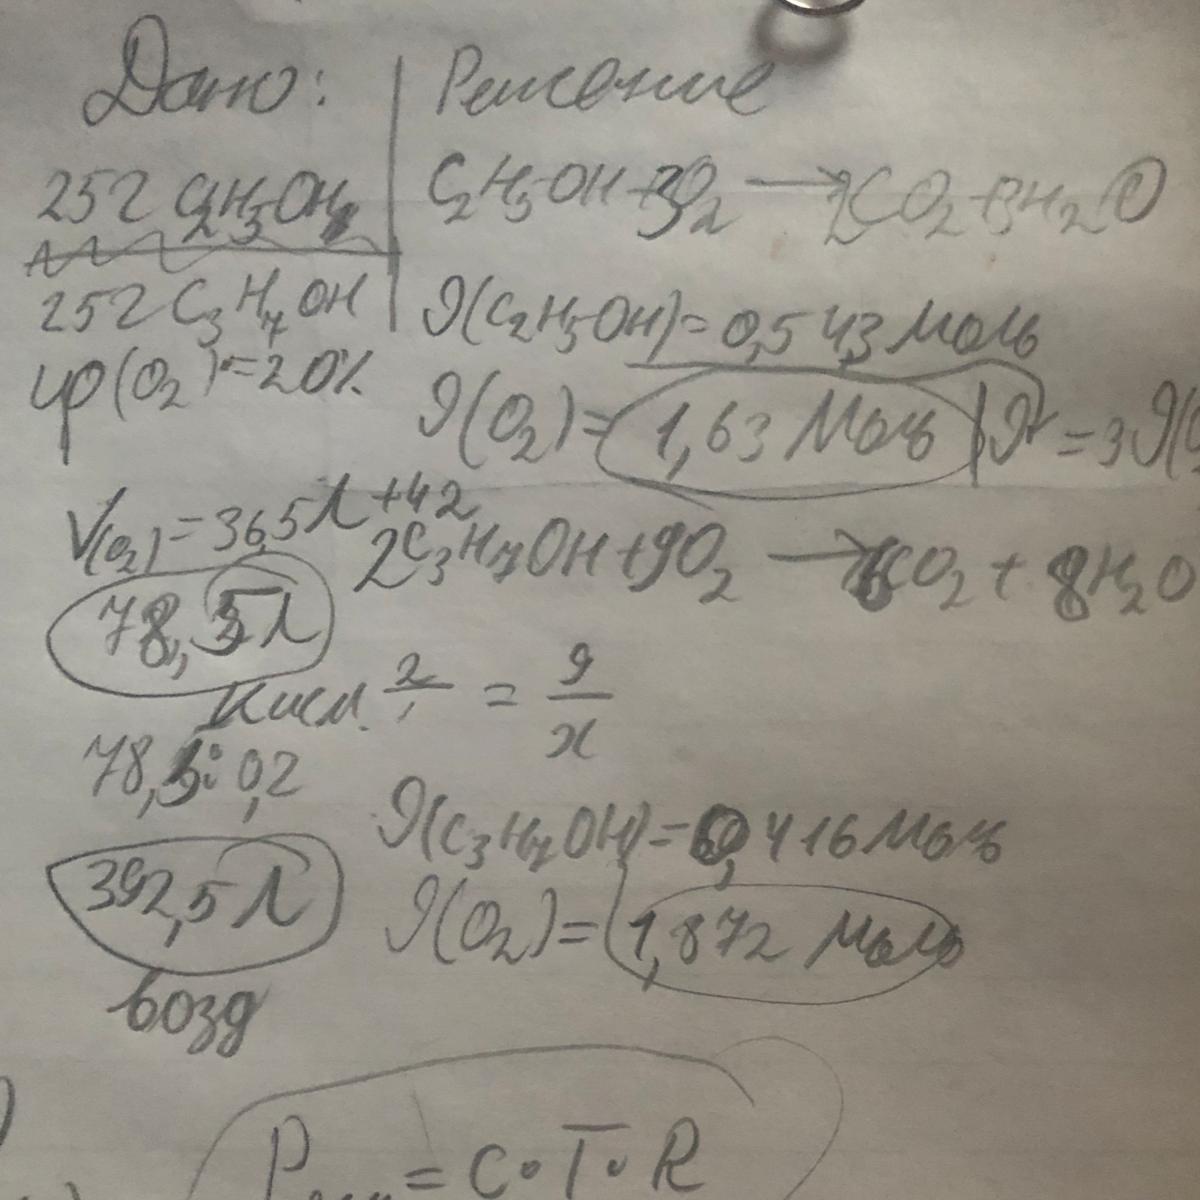 Дано:
Решение
25г C2H5OH
C2H5OH + 3O2 → 2CO2 + 3H2O
25г C3H7OH
ν(C2H5OH) = 0,543 моль
φ(O2) = 20%
ν(O2) = 1,63 моль
= 3ν(
V(O2) = 36,5л + 42
2C3H7OH + 9O2 → 6CO2 + 8H2O
78,5л
Кисл. 2/ = 9/x
78,5 : 0,2
ν(C3H7OH) = 0,416 моль
392,5 л
ν(O2) = 1,872 моль
возд
= C · T · R